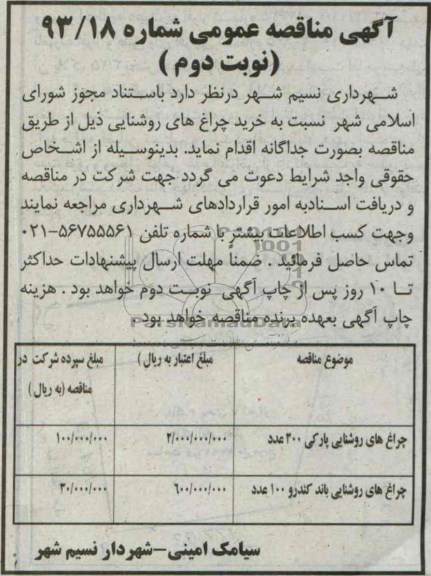 آگهی مناقصه عمومی شماره ۹۳/۱۸
(نوبت دوم )
شهرداری نسیم شهر درنظر دارد باستناد مجوز شورای
اسلامی شهر نسبت به خرید چراغ های روشنایی ذیل از طریق
مناقصه بصورت جداگانه اقدام نماید. بدینوسیله از اشخاص
حقوقی واجد شرایط دعوت می گردد جهت شرکت در مناقصه
و دریافت اسنادبه امور قراردادهای شهرداری مراجعه نمایند
وجهت کسب اطلاعات بیشتر با شماره تلفن ۵۶۷۵۵۵۶۱-۰۲۱
تماس حاصل فرمائید . ضمناً مهلت ارسال پیشنهادات حداکثر
تا ۱۰ روز پس از چاپ آگهی نوبت دوم خواهد بود . هزینه
چاپ آگهی بعهده برنده مناقصه خواهد بود.
موضوع مناقصه مبلغ اعتبار به ریال ) مبلغ سپرده شرکت در
مناقصه (به ریال )
چراغ های روشنایی پارکی ۲۰۰ عدد ۲/۰۰۰/۰۰۰/۰۰۰ ۱۰۰/۰۰۰/۰۰۰
چراغ های روشنایی باند کندرو ۱۰۰ عدد ۶۰۰/۰۰۰/۰۰۰ ۳۰/۰۰۰/۰۰۰
سیامک امینی-شهردار نسیم شهر